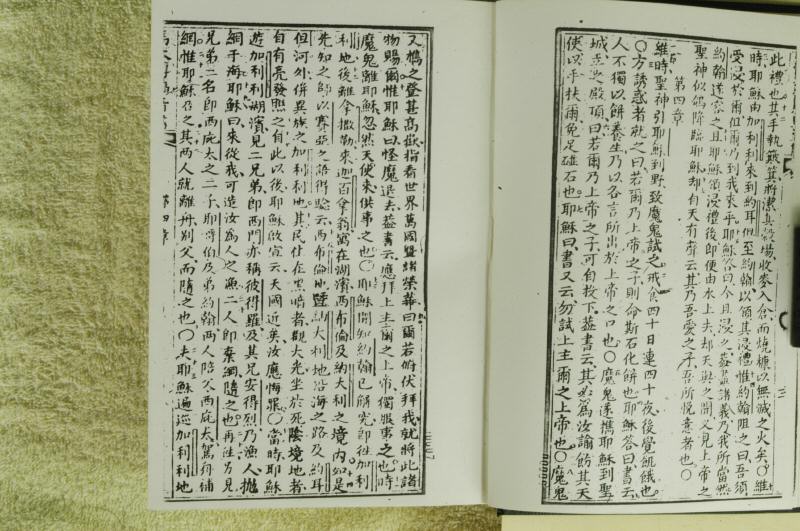 此禮也其手執簸箕將潔其禾場收麥入倉而燒糠以無滅之火矣○維
時耶穌由加利利來到約耳但至約翰以領其浸禮惟約翰阻之曰吾須
受浸於爾但爾乃到我來乎耶穌答曰今且浸之蓋盡諸義乃我所當然
約翰遂容之且耶穌領浸禮後即便由水上去却天與之開又見上帝之
聖神似鴿降臨耶穌却自天有聲云其乃吾愛之子吾所悅意者也○
第四章
維時聖神引耶穌到野致魔鬼試之戒食四十日連四十夜後覺飢餓也
○方誘惑者就之曰若爾乃上帝之子則命斯石化餅也耶穌答曰書云
人不獨以餅養生乃以各言所出於上帝之口也○魔鬼遂攜耶穌到聖
城至殿頂曰若爾乃上帝之子可自投下蓋書云其必為汝諭飭其天
使以手扶爾免足碰石也耶穌曰書又云勿試上主爾之上帝也○魔鬼
又攜之登甚高嶽指看世界萬國暨緒榮華曰爾若俯伏拜我就將此諸
物賜爾惟耶穌曰怪魔退去蓋書云應拜上主爾之上帝獨服事之也時
魔鬼離耶穌忽然天使來供事之也○耶穌聞知約翰已解究即往加利
利地後離拿撒勒來迦百拿翁寓在湖濱西布倫及納大利之境內如是
先知之師以賽亞之語得驗云西布倫地暨納大利地沿海之路及約耳
但河外併異族之加利利地其民住在黑暗者觀大光坐於死陰境地者
自有亮發照之自此以後耶穌啟宣云天國近矣汝應悔罪○當時耶穌
遊加利利湖濱見二兄弟即西門亦稱彼得羅及其兄安得烈乃漁人拋
網于海耶穌曰來從我可造汝為人之漁二人即棄網隨之也再往見
兄弟二名即西庇太之二子耶哥伯及弟約翰兩人陪父西庇太駕舟補
網惟耶穌召之其兩人就離舟別父而隨之也○夫耶穌遍巡加利利地
第四章